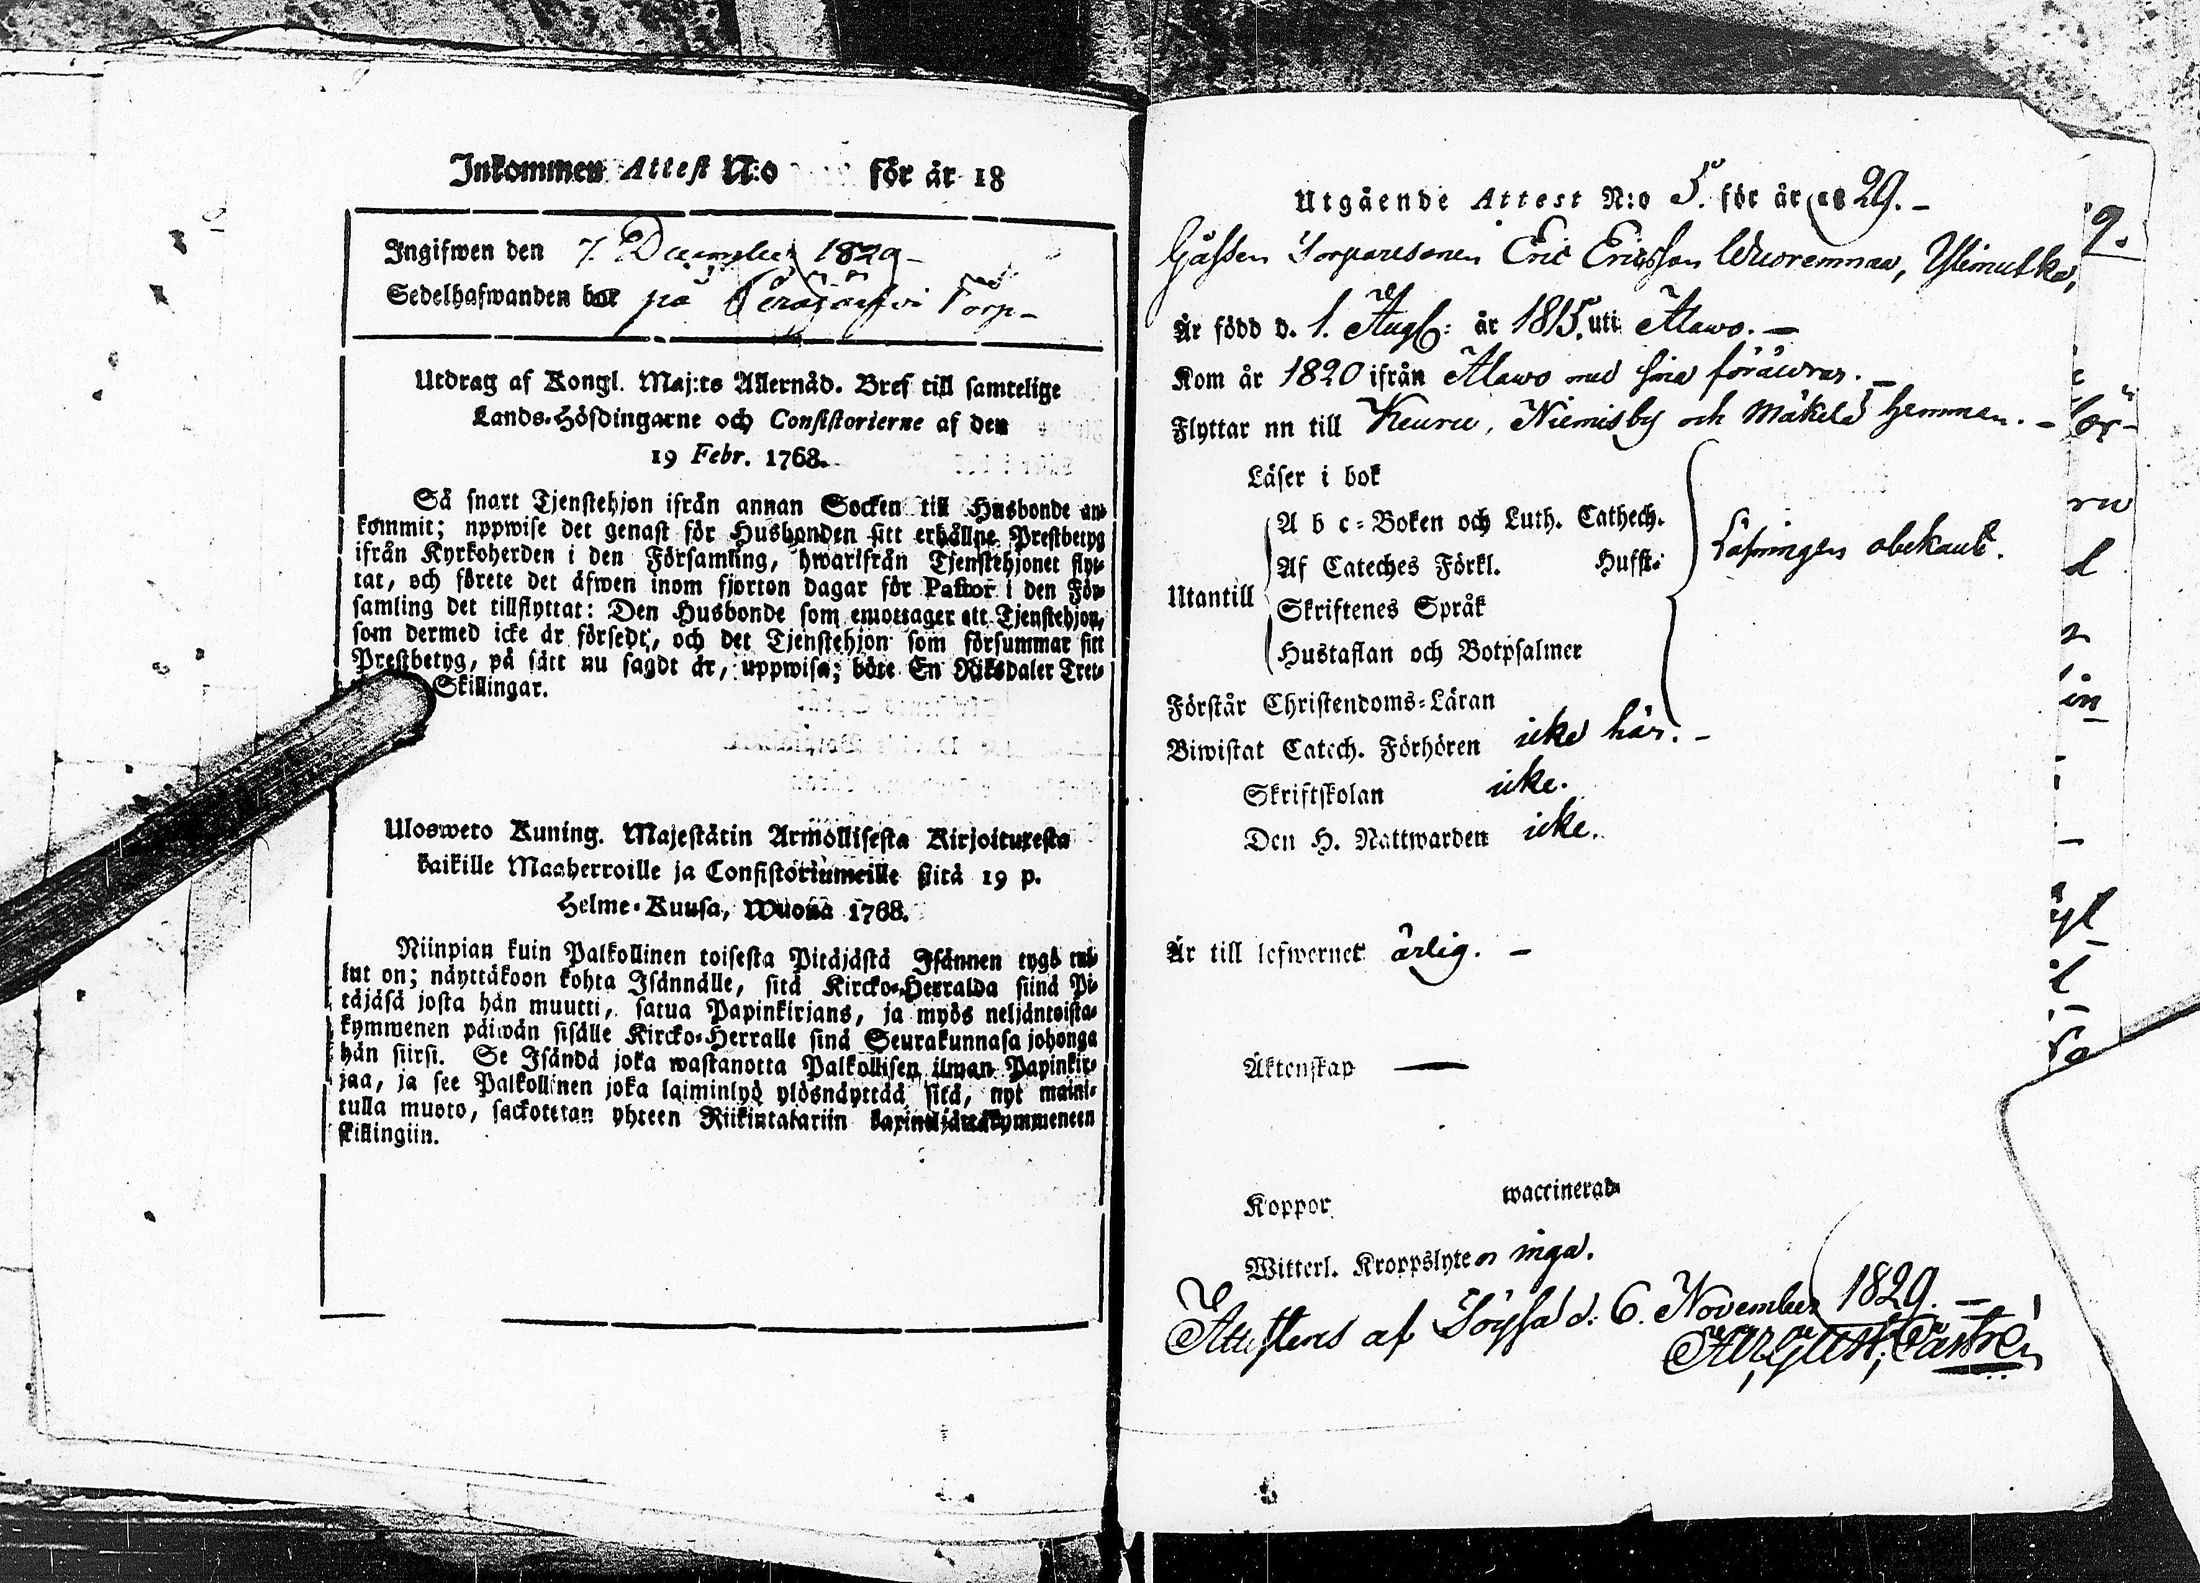 Inkommen Attest N:o för år 18
Ingifwen den 7. December 1829 –
Sedelhafwanden bor på Peräjärfwi Torp –
Utdrag af Kongl. Maj:ts Allernåd. Bref till samtelige
Lands-Höfdingarne och Consistorierne af den
19 Febr. 1768.
Så snart Tjenstehjon ifrån annan Socken till Husbonde an-
kommit; uppwise det genast för Husbonden sitt erhållne Prestbetyg
ifrån Kyrkoherden i den Församling, hwarifrån Tjenstehjonet flyt-
tat, och förete det äfwen inom fjorton dagar för Pastor i den För-
samling det tillflyttat: Den Husbonde som emottager ett Tjenstehjon,
som dermed icke är försedt, och det Tjenstehjon som försummar sitt
Prestbetyg, på sätt nu sagdt är, uppwisa; böte En Riksdaler Tret-
Skillingar.
Ulosweto Kuning. Majestätin Armollisesta Kirjoituresta
kaikille Maaherroille ja Consistoriumeille siitä 19 p.
Helme-Kuusa, Wuona 1768.
Niinpian kuin Palkollinen toisesta Pitäjästä Isännen tygö tul-
lut on; näyttäkoon kohta Isännälle, sitä Kircko-Herralda siinä Pi-
täjäsä josta hän muutti, saatua Papinkirjans, ja myös neljäntoista-
kymmenen päiwän sisälle Kircko-Herralle sinä Seurakunnasa johonga
hän siirsi. Se Isändä joka wastanotta Palkollisen ilman Papinkir-
jaa, ja see Palkollinen joka laiminlyö ylösnäyttää sitä, nyt maini-
tulla muoto, sackotetan yhteen Riikintalariin kaxineljättäkymmeneen
skillingiin.
Utgående Attest N:o 5. för år 1829. –
Gåssen Torparesonen Eric Ericsson Wuoremnaa, Ylimutka,
Är född d. 1. Aug: år 1815. uti Alawo. –
Kom år 1820 ifrån Alawo med sina föräldrar. –
Flyttar nu till Keuru, Niemisby och Mäkelä hemman. –
Läser i bok
A b c-Boken och Luth. Cathech.
Af Cateches Förkl. Hufst:
Läsningen obekant.
Utantill
Skriftenes Språk
Hustaflan och Botpsalmer
Förstår Christendoms-Läran
Biwistat Catech. Förhören icke här. –
Skriftskolan icke.
Den H. Nattwarden icke.
Är till lefwernet ärlig. –
Äktenskap —
Koppor waccinerad
Witterl. Kroppslyten inga.
Attesteras af Töysä d. 6. November 1829. –
Aug Gust, Castrén